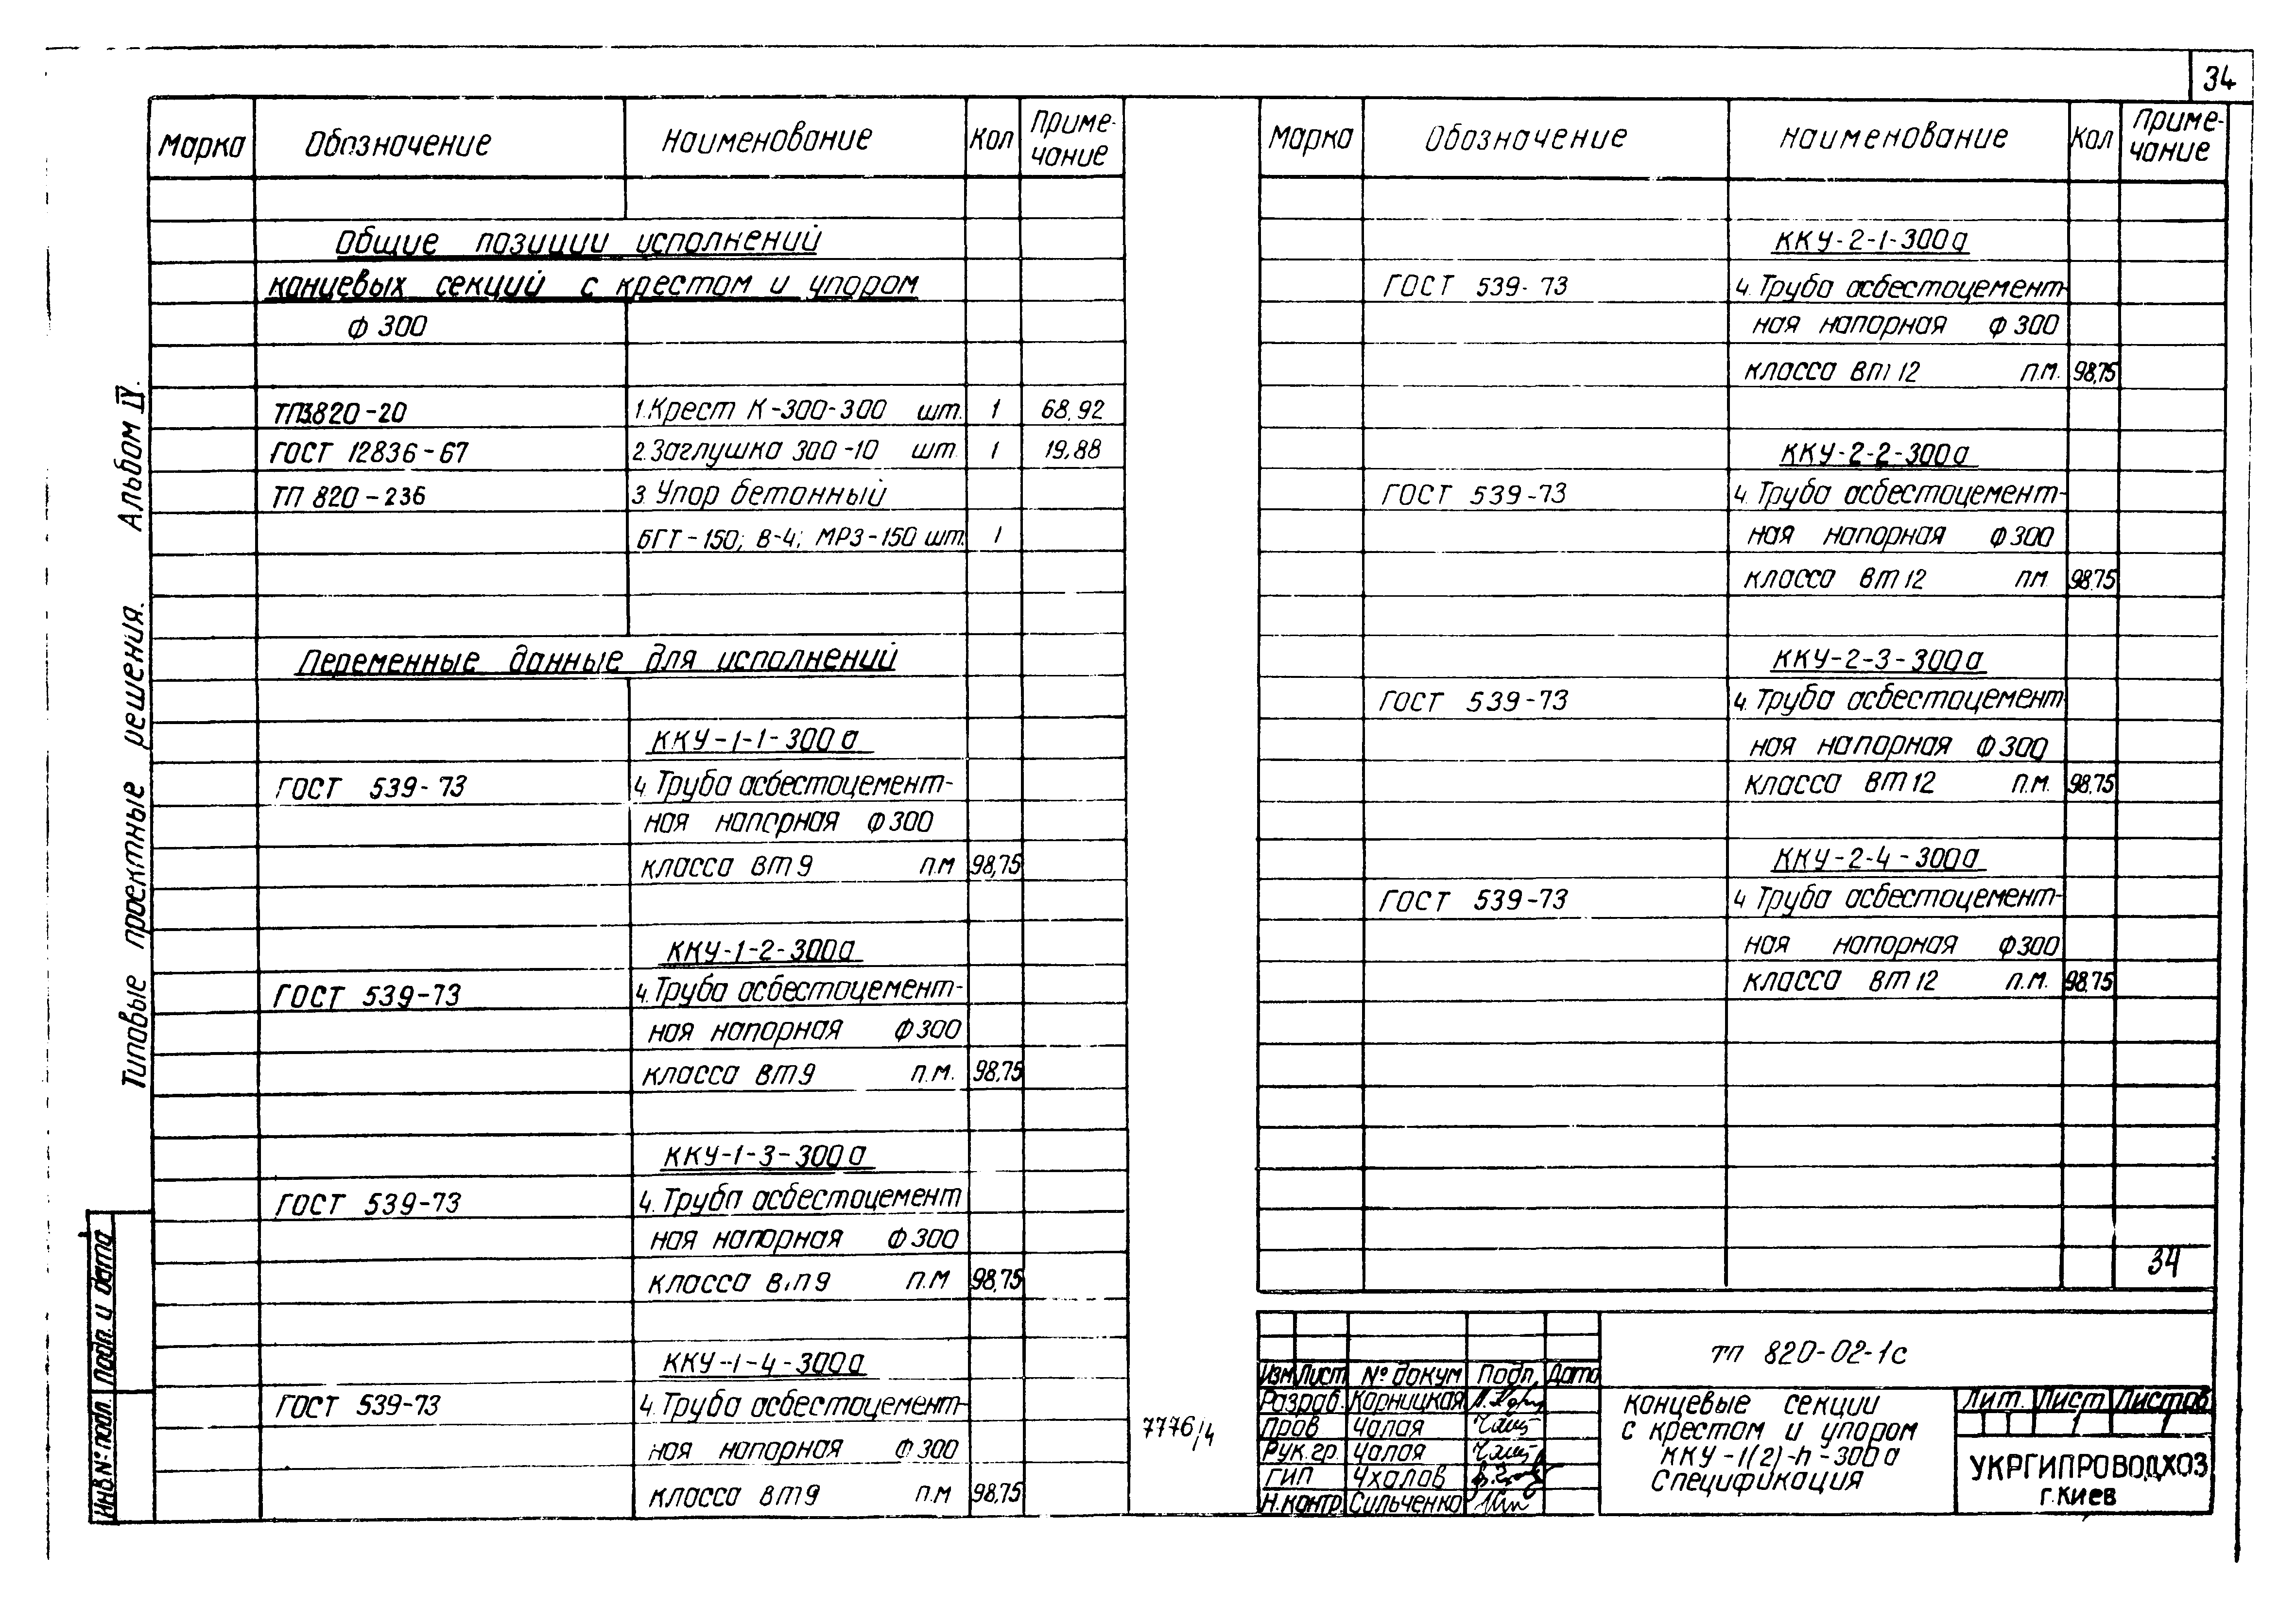 34
Марка Обозначение Наименование Кол Приме-
чание
Общие позиции исполнений
концевых секций с крестом и упором
Ф 300
ТП3.820-20 1. Крест К-300-300 шт. 1 68.92
ГОСТ 12836-67 2. Заглушка 300-10 шт. 1 19.88
ТП 820-236 3 Упор бетонный
БГТ-150; В-4; МРЗ-150 шт. 1
Переменные данные для исполнений
ККУ-1-1-300а
ГОСТ 539-73 4. Труба асбестоцемент-
ная напорная Ф300
класса ВТ9 п.м 98,75
ККУ-1-2-300а
ГОСТ 539-73 4. Труба асбестоцемент-
ная напорная Ф300
класса ВТ9 п.м. 98,75
ККУ-1-3-300а
ГОСТ 539-73 4. Труба асбестоцемент
ная напорная Ф300
класса ВТ9 п.м 98,75
ККУ-1-4-300а
ГОСТ 539-73 4. Труба асбестоцемент-
ная напорная Ф300
класса ВТ9 п.м 98,75
Марка Обозначение Наименование Кол Приме-
чание
ККУ-2-1-300а
ГОСТ 539-73 4. Труба асбестоцемент-
ная напорная Ф300
класса ВТ12 п.м. 98,75
ККУ-2-2-300а
ГОСТ 539-73 4. Труба асбестоцемент-
ная напорная Ф300
класса ВТ12 пм 98.75
ККУ-2-3-300а
ГОСТ 539-73 4. Труба асбестоцемент
ная напорная Ф300
класса ВТ12 п.м. 98,75
ККУ-2-4-300а
ГОСТ 539-73 4 Труба асбестоцемент-
ная напорная Ф300
класса ВТ12 п.м. 98.75
34
Типовые проектные решения. Альбом IV.
Инв.№ подл. Подп. и дата
7776/4
Изм Лист № докум Подп. Дата
Разраб. Корницкая
Пров Чалая
Рук.гр. Чалая
ГИП Чхалов
Н.контр. Сильченко
тп 820-02-1с
Концевые секции
с крестом и упором
ККУ-1(2)-n-300а
Спецификация
Лит. Лист Листов
1 1
УКРГИПРОВОДХОЗ
г.Киев